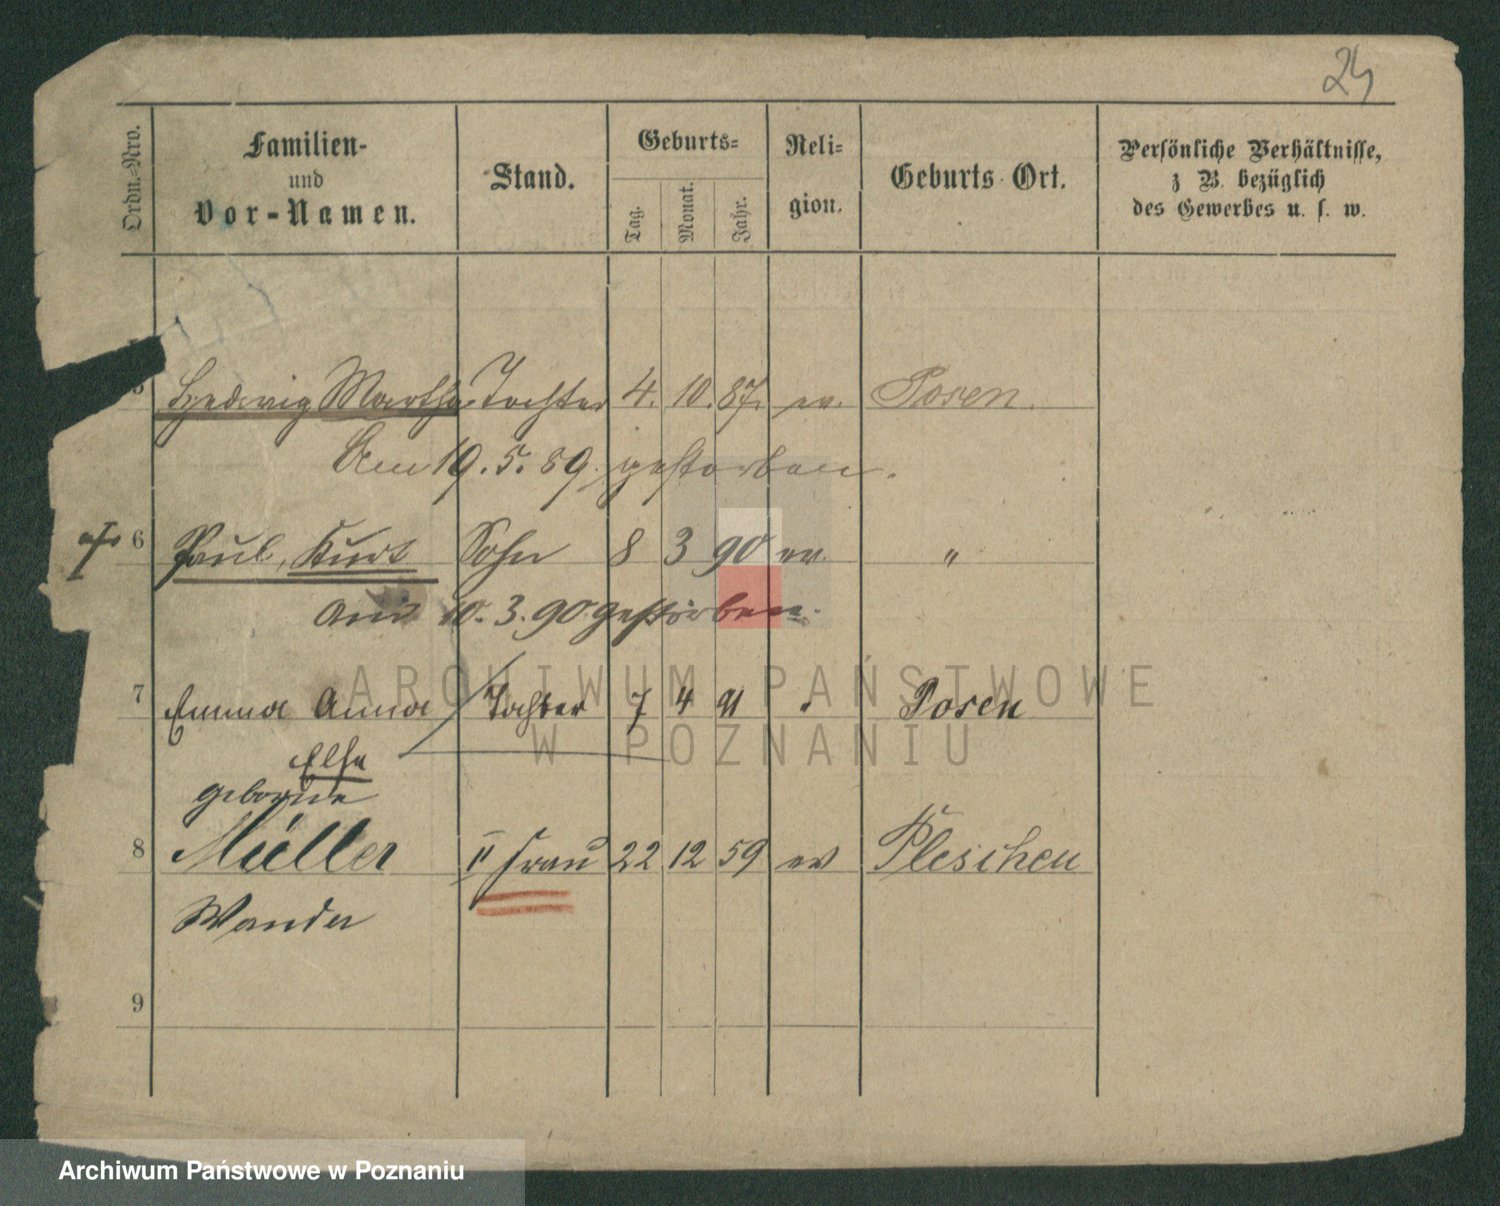 24
Ordn.-Nro.
Familien-
und
Vor-Namen.
Stand.
Geburts-
Tag.
Monat.
Jahr.
Reli-
gion.
Geburts Ort.
Persönliche Verhältnisse,
z B. bezüglich
des Gewerbes u. s. w.
5 Hedwig Martha Tochter 4. 10. 87. ev. Posen.
Am 19. 5. 89. gestorben.
6 Paul, Kurt Sohn 8 3 90 ev. "
Am 10. 3. 90 gestorben.
7 Emma Anna Tochter 7 4 91 " Posen
Elsa
geborene
8 Müller II Frau 22 12 59 ev Pleschen
Wanda
9
ARCHIWUM PAŃSTWOWE
W POZNANIU
Archiwum Państwowe w Poznaniu